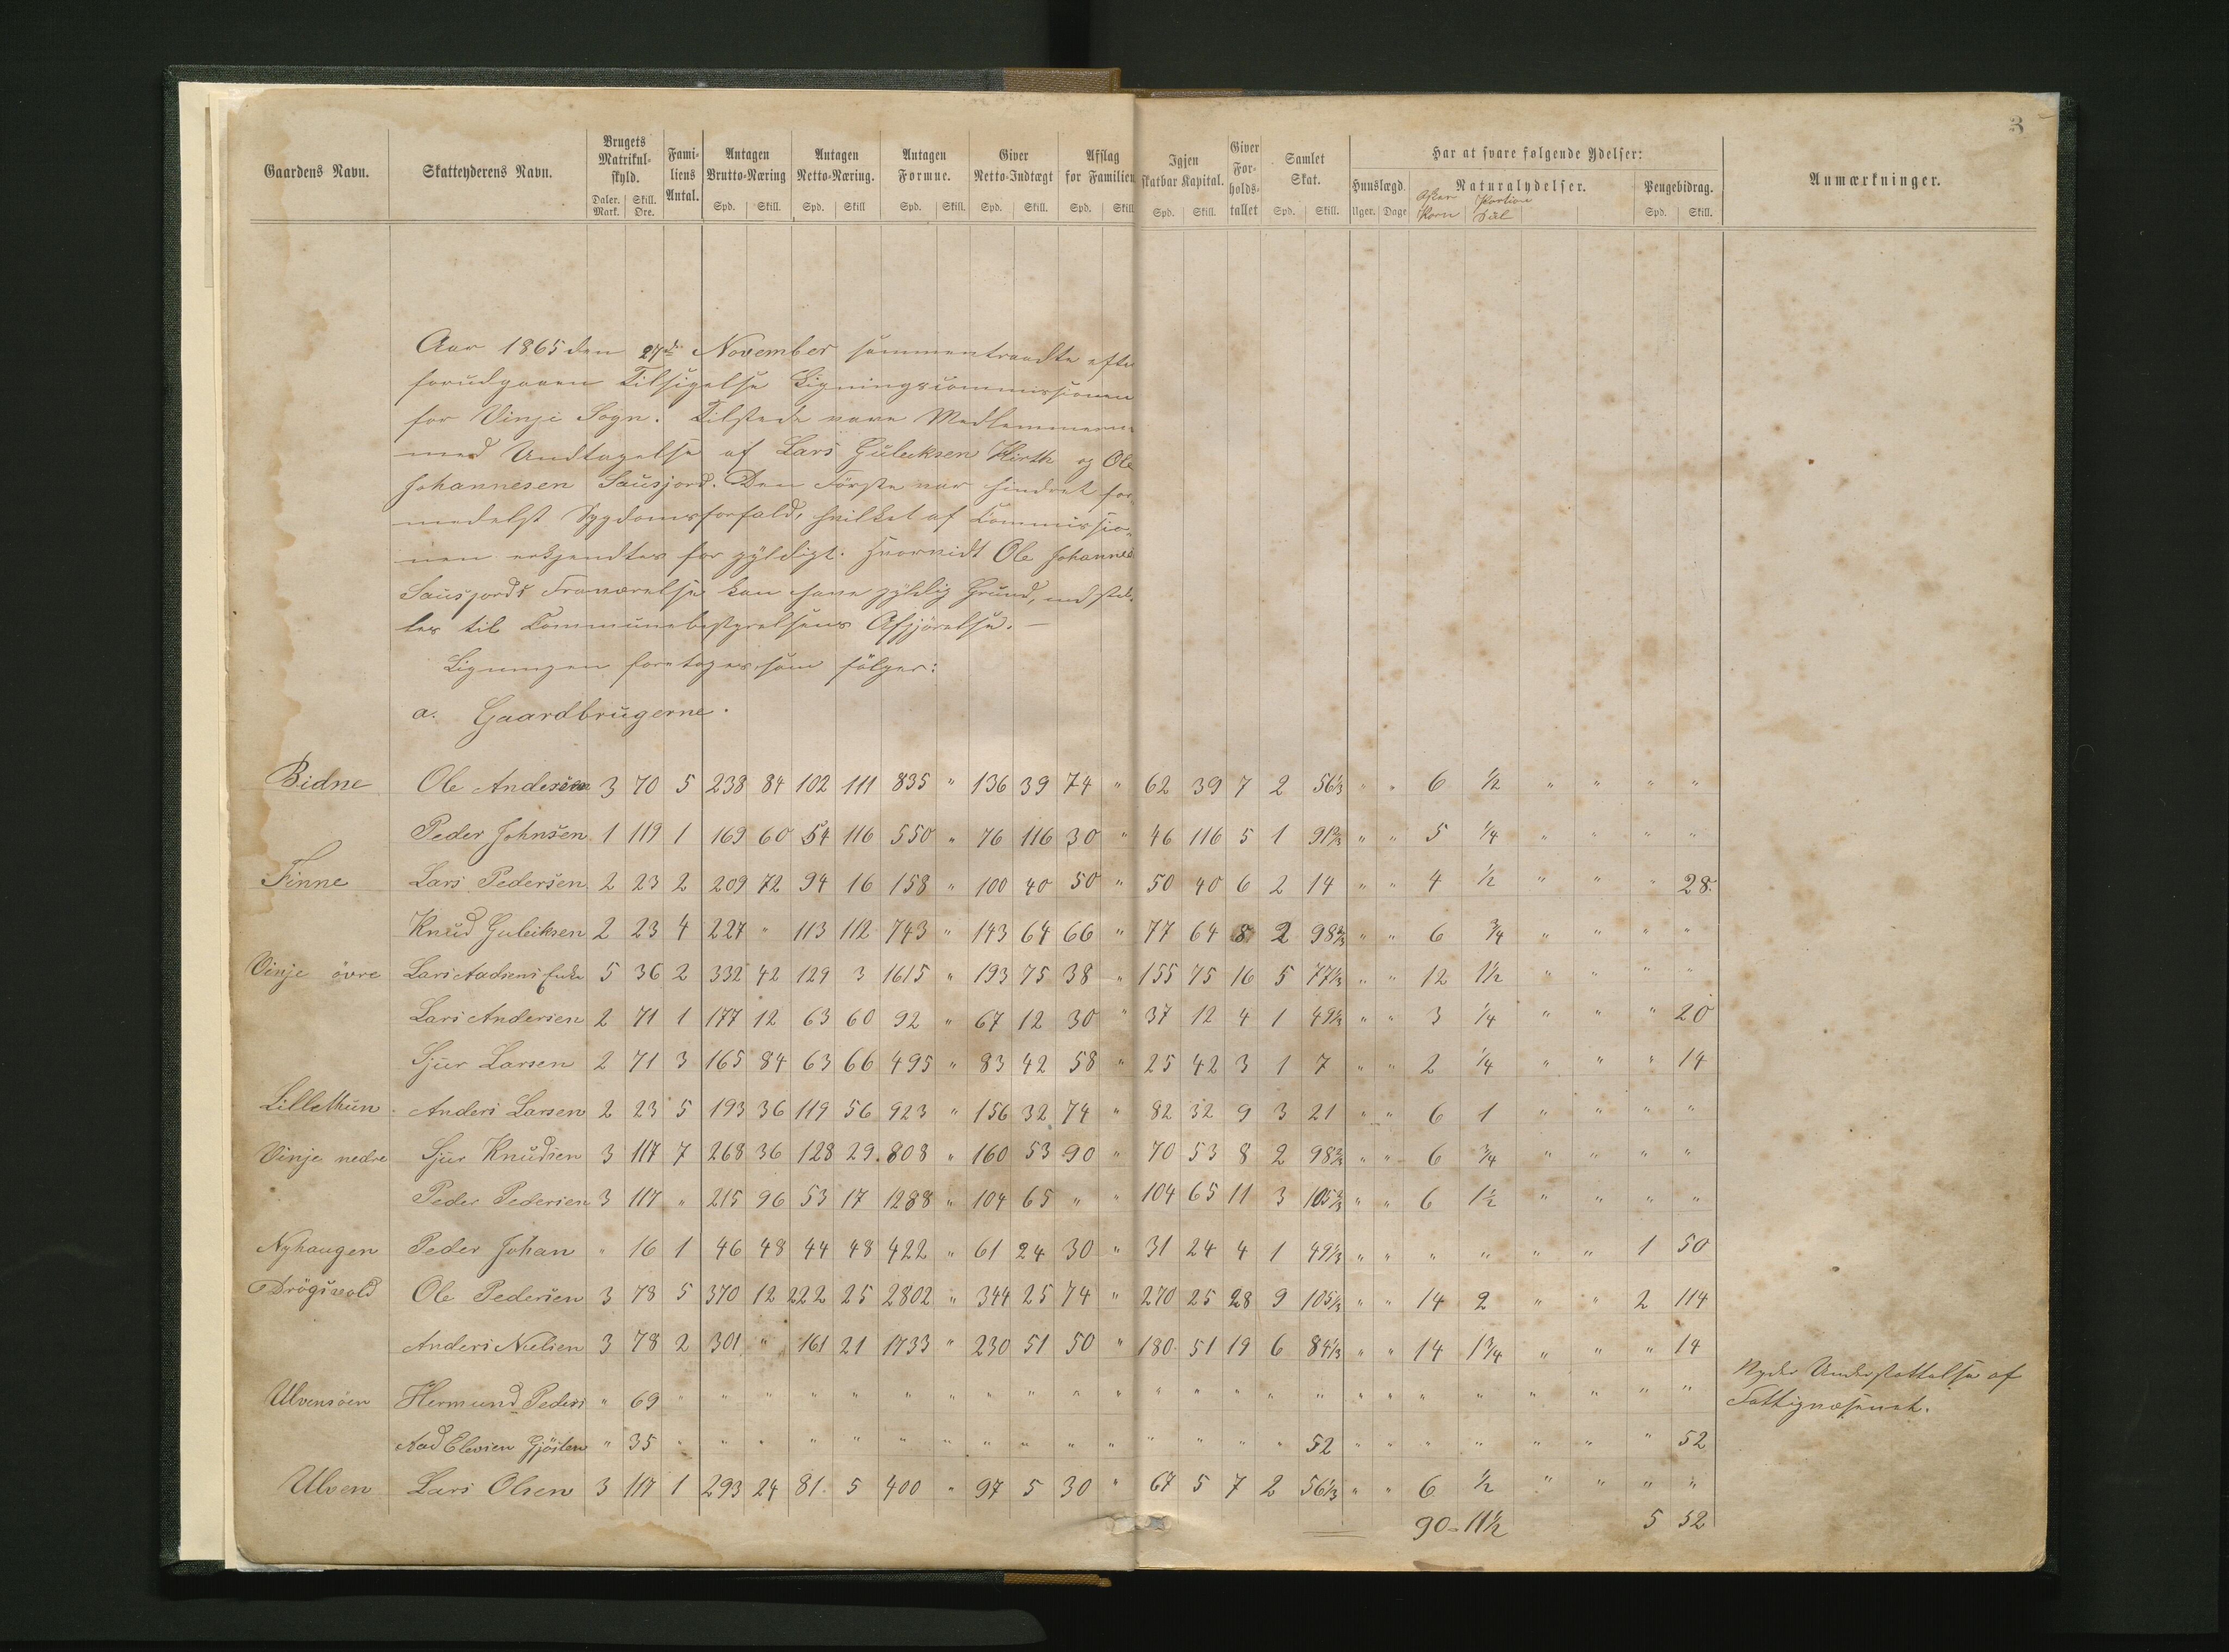 3
Gaardens Navn. Skatteyderens Navn. Brugets Matrikulskyld. Familiens Antal. Antagen Brutto-Næring Antagen Netto-Næring. Antagen Formue. Giver Netto-Indtægt Afslag for Familien Igjen skatbar Kapital. Giver Forholdstallet Samlet Skat. Har at svare følgende Ydelser: Anmærkninger.
Huuslægd. Naturalydelser. Pengebidrag.
Daler. Mark. Skill. Ore. Spd. Skill. Spd. Skill Spd. Skill. Spd. Skill. Spd. Skill Spd. Skill. Spd. Skill. Uger. Dage Korn Spd. Skill.
Aar 1865 den 27de November sammentraadte efter
forudgaaen Tilsigelse Ligningscommissionen
for Vinje Sogn. Tilstede vare Medlemmerne
med Undtagelse af Lars Guleksen Hirth og Ole
Johannesen Sausjord. Den Første var hindret for
medelst Sygdomsforfald, hvilket af Commissio-
nen erkjendtes for gyldigt. Hvorvidt Ole Johannes
Sausjords Fraværelse kan have gyldig Grund, indstil-
les til Communebestyrelsens Afgjørelse. —
Ligningen foretoges som følger:
a. Gaardbrugerne.
Bidne Ole Andersen 3 70 5 238 84 102 111 835 " 136 39 74 " 62 39 7 2 56⅓ " " 6 ½ " " " "
Peder Johnsen 1 119 1 169 60 54 116 550 " 76 116 30 " 46 116 5 1 91⅔ " " 5 ¼ " " " "
Finne Lars Pedersen 2 23 2 209 72 94 16 158 " 100 40 50 " 50 40 6 2 14 " " 4 ½ " " " 28
Knud Guleiksen 2 23 4 227 " 113 112 743 " 143 64 66 " 77 64 8 2 98⅔ " " 6 ¾ " " " "
Vinje övre Lars Aadsens Enke 5 36 2 332 42 129 3 1615 " 193 75 38 " 155 75 16 5 77⅓ " " 12 1½ " " " "
Lars Andersen 2 71 1 177 12 63 60 92 " 67 12 30 " 37 12 4 1 49⅓ " " 3 ¼ " " " 20
Sjur Larsen 2 71 3 165 84 63 66 495 " 83 42 58 " 25 42 3 1 7 " " 2 ¼ " " " 14
Lillethun Anders Larsen 2 23 5 193 36 119 56 923 " 156 32 74 " 82 32 9 3 21 " " 6 1 " " " "
Vinje nedre Sjur Knudsen 3 117 7 268 36 128 29 808 " 160 53 90 " 70 53 8 2 98⅔ " " 6 ¾ " " " "
Peder Pedersen 3 117 " 215 96 53 17 1288 " 104 65 " " 104 65 11 3 105⅔ " " 6 1½ " " " "
Nyhaugen Peder Johan " 16 1 46 48 44 48 422 " 61 24 30 " 31 24 4 1 49⅓ " " " " " " 1 50
Drögsvold Ole Pedersen 3 78 5 370 12 222 25 2802 " 344 25 74 " 270 25 28 9 105⅓ " " 14 2 " " 2 114
Anders Nielsen 3 78 2 301 " 161 21 1733 " 230 51 50 " 180 51 19 6 84⅓ " " 14 1¾ " " " 14
Ulvensöen Hermund Peders " 69 " " " " " " " " " " " " " " " " " " " " " " " " Nyder Understøttelse af
Fattigvæsenet.
Aad " 35 " " " " " " " " " " " " " " " 52 " " " " " " " 52
Ulven Lars Olsen 3 117 1 293 24 81 5 400 " 97 5 30 " 67 5 7 2 56⅓ " " 6 ½ " " " "
90 - 11½ 5 52